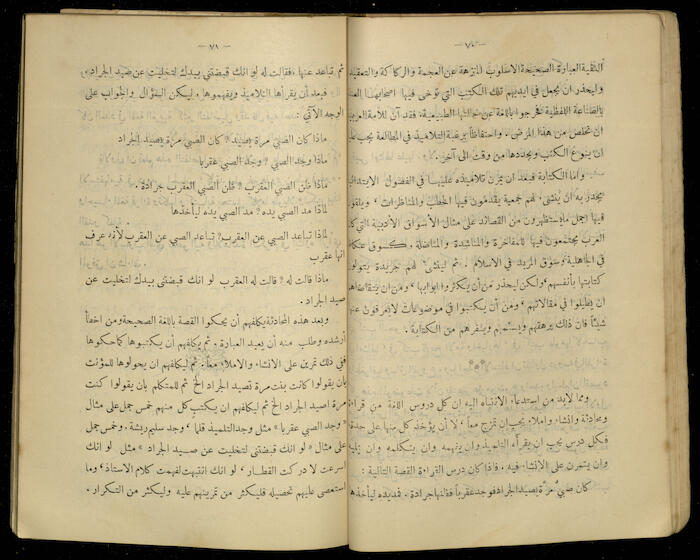 — ٧٧ —
النقية العبارة الصحيحة الاسلوب المنزهة عن العجمة والركاكة والتعقيد
وليحذر ان يجعل في ايديهم تلك الكتب التي توخى فيها اصحابها
الصناعة اللفظية فخرجوا باللغة عن حالتها الطبيعية، فقد آن للأمة العربية
ان تخلص من هذا المرض. واحتفاظاً برغبة التلاميذ في المطالعة يجب
ان ينوع الكتب ويجددها من وقت الى آخر.
واما الكتابة فبعد ان يمرن تلاميذه عليها في الفصول الابتدائية
يجدر به ان ينشئ لهم جمعية يقدمون فيها الخطب والمناظرات،
فيها اجمل ما يستظهرون من القصائد على مثال الأسواق الأدبية التي
العرب يجتمعون فيها للمفاخرة والمناشدة والمناضلة. كسوق عكاظ
في الجاهلية وسوق المربد في الاسلام. ثم لينشئ لهم جريدة يتولون
كتابتها بأنفسهم، ولكن ليحذر من أن يكثروا ابوابها، ومن ان
ان يطيلوا في مقالاتهم، ومن أن يكتبوا في موضوعات لا يعرفون عنها
شيئاً فان ذلك يرهقهم ويسئمهم وينفرهم من الكتابة.
***
ومما لا بد من استدعاء الانتباه اليه ان كل دروس اللغة من قراءة
ومحادثة وانشاء واملاء يجب ان تمزج معاً، لا أن يؤخذ كل منها على حدة
فكل درس يجب ان يقرأه التلميذ وان يفهمه وان يتكلمه وان
وان يتمرن على الانشاء فيه. فاذا كان درس القراءة القصة التالية:
كان صبي مرة يصيد الجراد فوجد عقرباً فظنها جرادة. فمد يده ليأخذها
— ٧٨ —
ثم تباعد عنها، فقالت له لو انك قبضتني بيدك لتخليت عن صيد الجراد»
فبعد أن يقرأها التلاميذ ويفهموها، ليكن السؤال والجواب على
الوجه الآتي:
ماذا كان الصبي مرة يصيد? كان الصبي مرة يصيد الجراد
ماذا وجد الصبي? وجد الصبي عقربا
ماذا ظن الصبي العقرب? ظن الصبي العقرب جرادة.
لماذا مد الصبي يده? مد الصبي يده ليأخذها
لماذا تباعد الصبي عن العقرب? تباعد الصبي عن العقرب لأنه عرف
انها عقرب
ماذا قالت له? قالت له العقرب لو انك قبضتني بيدك لتخليت عن
صيد الجراد.
وبعد هذه المحادثة يكلفهم أن يحكوا القصة باللغة الصحيحة ومن اخطأ
أرشده وطلب منه أن يعيد العبارة، ثم يكلفهم ان يكتبوها كما حكوها
ففي ذلك تمرين على الانشاء والاملاء معاً. ثم ليكلفهم ان يحولوها للمؤنث
بأن يقولوا كانت بنت مرة تصيد الجراد الخ ثم للمتكلم بأن يقولوا كنت
مرة اصيد الجراد الخ ثم ليكلفهم ان يكتب كل منهم خمس جمل على مثال
«وجد الصبي عقربا» مثل وجد التلميذ قلما، وجد سليم ريشة. وخمس جمل
على مثال «لو انك قبضتني لتخليت عن صيد الجراد» مثل لو انك
اسرعت لادركت القطار، لو انك انتبهت لفهمت كلام الاستاذ، وما
استعصى عليهم تحصيله فليكثر من تمرينهم عليه وليكثر من التكرار.